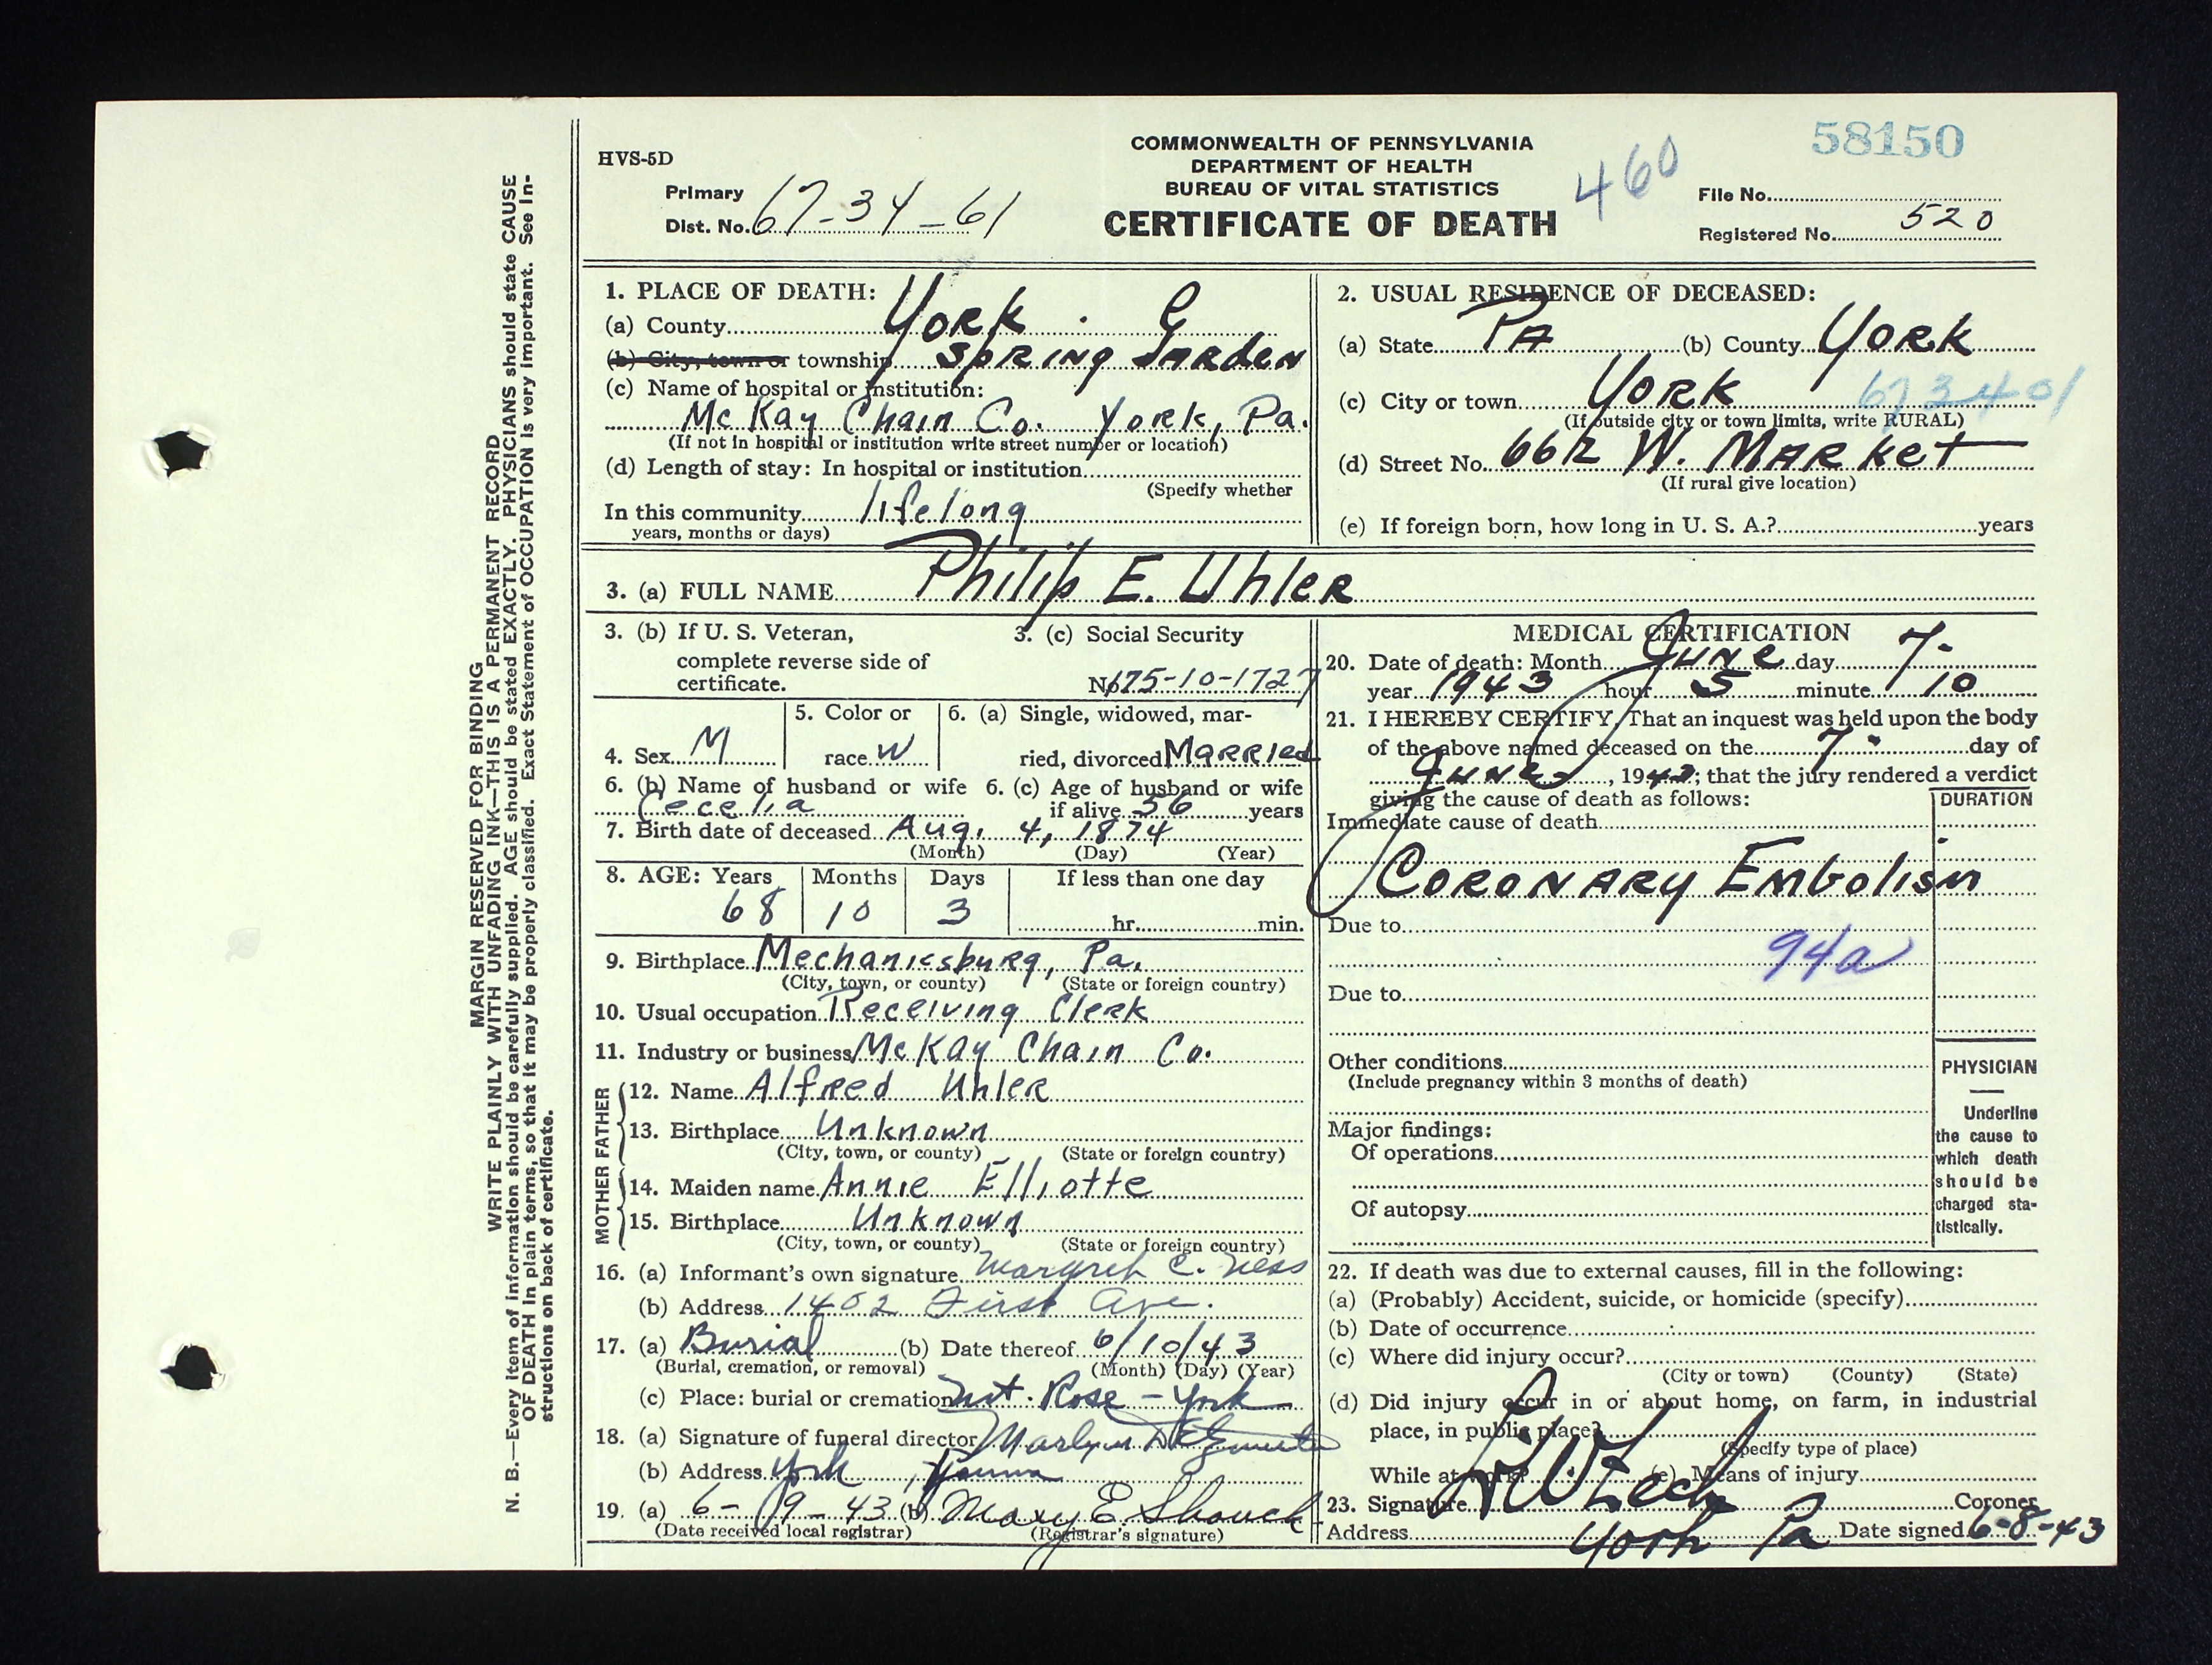 58150
HVS-5D
COMMONWEALTH OF PENNSYLVANIA
DEPARTMENT OF HEALTH
BUREAU OF VITAL STATISTICS
CERTIFICATE OF DEATH
460
Primary
Dist. No. 67-34-61
File No.
Registered No. 520
MARGIN RESERVED FOR BINDING
WRITE PLAINLY WITH UNFADING INK—THIS IS A PERMANENT RECORD
N. B.—Every item of information should be carefully supplied. AGE should be stated EXACTLY. PHYSICIANS should state CAUSE
OF DEATH in plain terms, so that it may be properly classified. Exact Statement of OCCUPATION is very important. See In-
structions on back of certificate.
1. PLACE OF DEATH:
(a) County York
(b) City, town or township Spring Garden
(c) Name of hospital or institution:
McKay Chain Co. York, Pa.
(If not in hospital or institution write street number or location)
(d) Length of stay: In hospital or institution
(Specify whether
In this community lifelong
years, months or days)
2. USUAL RESIDENCE OF DECEASED:
(a) State PA (b) County York
(c) City or town York 673401
(If outside city or town limits, write RURAL)
(d) Street No. 662 W. Market
(If rural give location)
(e) If foreign born, how long in U. S. A.? years
3. (a) FULL NAME Philip E. Uhler
3. (b) If U. S. Veteran,
complete reverse side of
certificate.
3. (c) Social Security
No 175-10-1727
4. Sex M
5. Color or
race W
6. (a) Single, widowed, mar-
ried, divorced Married
6. (b) Name of husband or wife
Cecelia
6. (c) Age of husband or wife
if alive 56 years
7. Birth date of deceased Aug. 4, 1874
(Month) (Day) (Year)
8. AGE: Years Months Days If less than one day
68 10 3 hr. min.
9. Birthplace Mechanicsburg, Pa.
(City, town, or county) (State or foreign country)
10. Usual occupation Receiving Clerk
11. Industry or business McKay Chain Co.
FATHER
12. Name Alfred Uhler
13. Birthplace Unknown
(City, town, or county) (State or foreign country)
MOTHER
14. Maiden name Annie Elliotte
15. Birthplace Unknown
(City, town, or county) (State or foreign country)
16. (a) Informant's own signature Margret C. Ness
(b) Address 1402 First Ave.
17. (a) Burial (b) Date thereof 6/10/43
(Burial, cremation, or removal) (Month) (Day) (Year)
(c) Place: burial or cremation Mt. Rose - York
18. (a) Signature of funeral director
(b) Address York, Penna
19. (a) 6-9-43 (b) Mary E. Shauck
(Date received local registrar) (Registrar's signature)
MEDICAL CERTIFICATION
20. Date of death: Month June day 7-
year 1943 hour 5 minute 10
21. I HEREBY CERTIFY, That an inquest was held upon the body
of the above named deceased on the 7- day of
June, 1943; that the jury rendered a verdict
giving the cause of death as follows:
DURATION
Immediate cause of death
Coronary Embolism
Due to
94a
Due to
Other conditions
(Include pregnancy within 3 months of death)
Major findings:
Of operations
Of autopsy
PHYSICIAN
Underline
the cause to
which death
should be
charged sta-
tistically.
22. If death was due to external causes, fill in the following:
(a) (Probably) Accident, suicide, or homicide (specify)
(b) Date of occurrence
(c) Where did injury occur?
(City or town) (County) (State)
(d) Did injury occur in or about home, on farm, in industrial
place, in public place?
(Specify type of place)
While at work? (e) Means of injury
23. Signature Coroner
Address York Pa Date signed 6-8-43